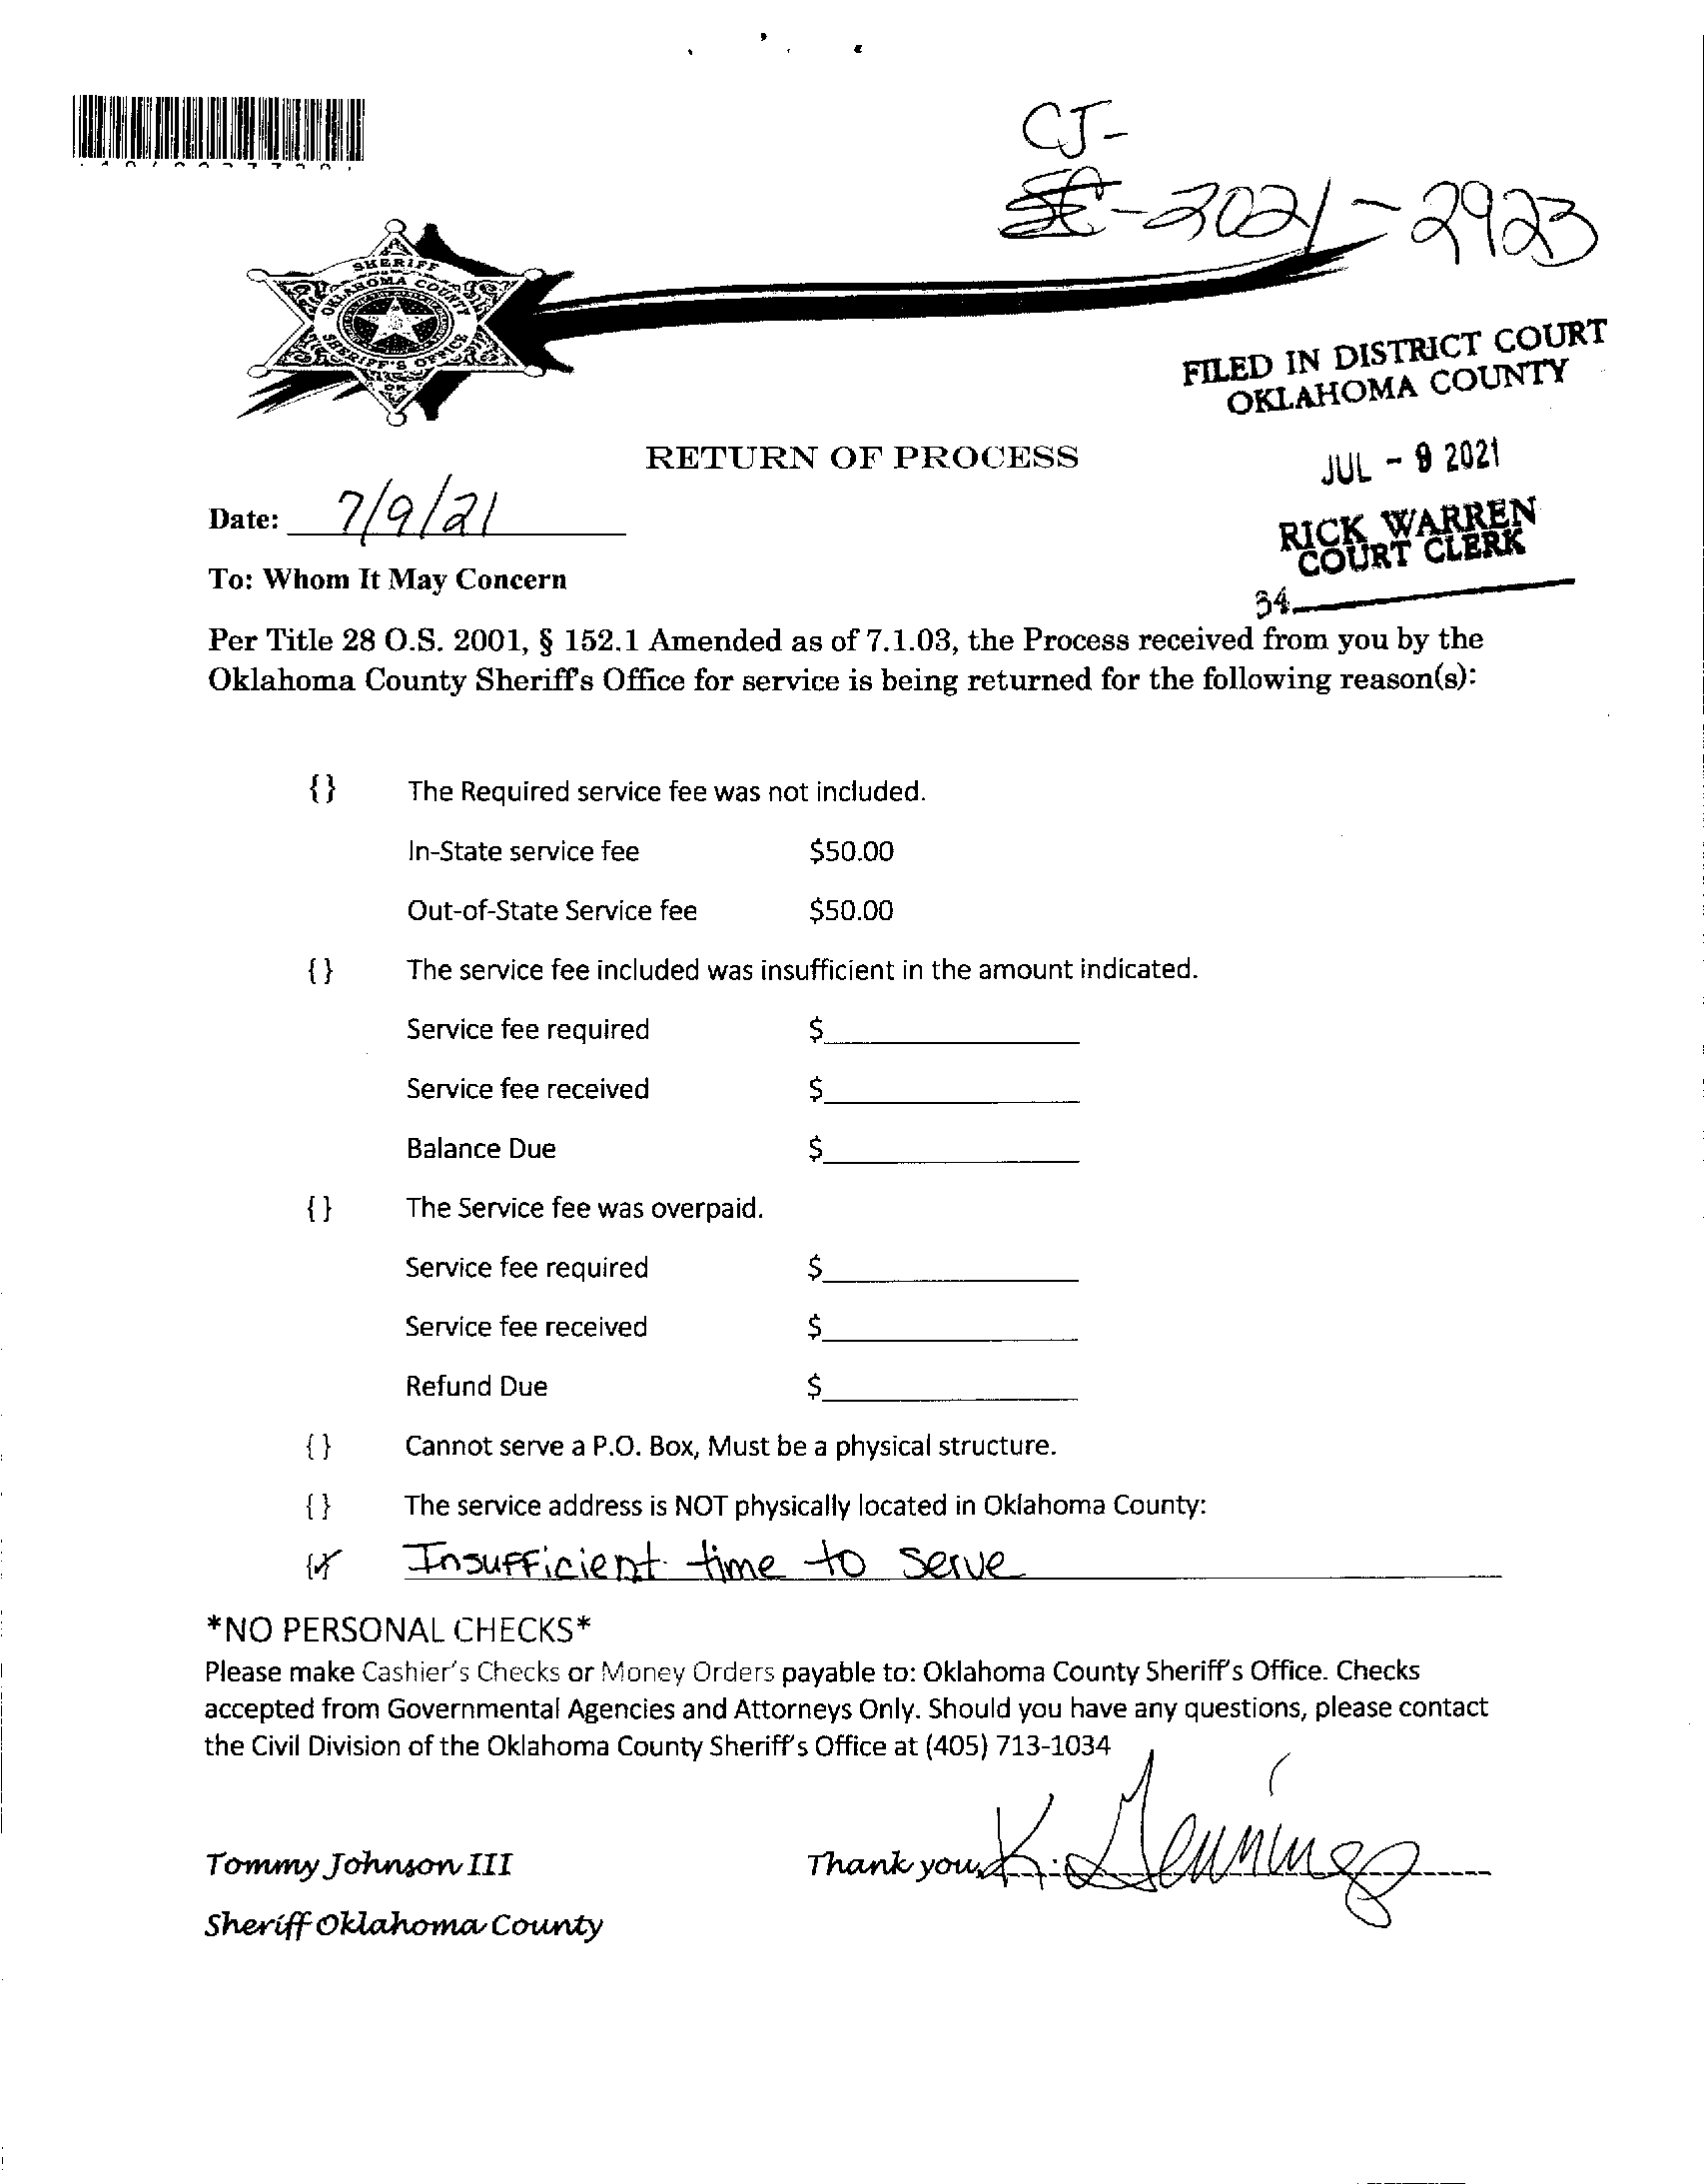 CJ-
SC-2021-2923
SHERIFF
OKLAHOMA COUNTY
SHERIFF'S OFFICE
OK
FILED IN DISTRICT COURT
OKLAHOMA COUNTY
RETURN OF PROCESS
JUL - 9 2021
Date: 7/9/21
RICK WARREN
COURT CLERK
To: Whom It May Concern
34
Per Title 28 O.S. 2001, § 152.1 Amended as of 7.1.03, the Process received from you by the
Oklahoma County Sheriff's Office for service is being returned for the following reason(s):
{} The Required service fee was not included.
In-State service fee $50.00
Out-of-State Service fee $50.00
{ } The service fee included was insufficient in the amount indicated.
Service fee required $
Service fee received $
Balance Due $
{ } The Service fee was overpaid.
Service fee required $
Service fee received $
Refund Due $
{ } Cannot serve a P.O. Box, Must be a physical structure.
{ } The service address is NOT physically located in Oklahoma County:
{✓} Insufficient time to serve
*NO PERSONAL CHECKS*
Please make Cashier's Checks or Money Orders payable to: Oklahoma County Sheriff's Office. Checks
accepted from Governmental Agencies and Attorneys Only. Should you have any questions, please contact
the Civil Division of the Oklahoma County Sheriff's Office at (405) 713-1034
Tommy Johnson III Thank you, K.
Sheriff Oklahoma County